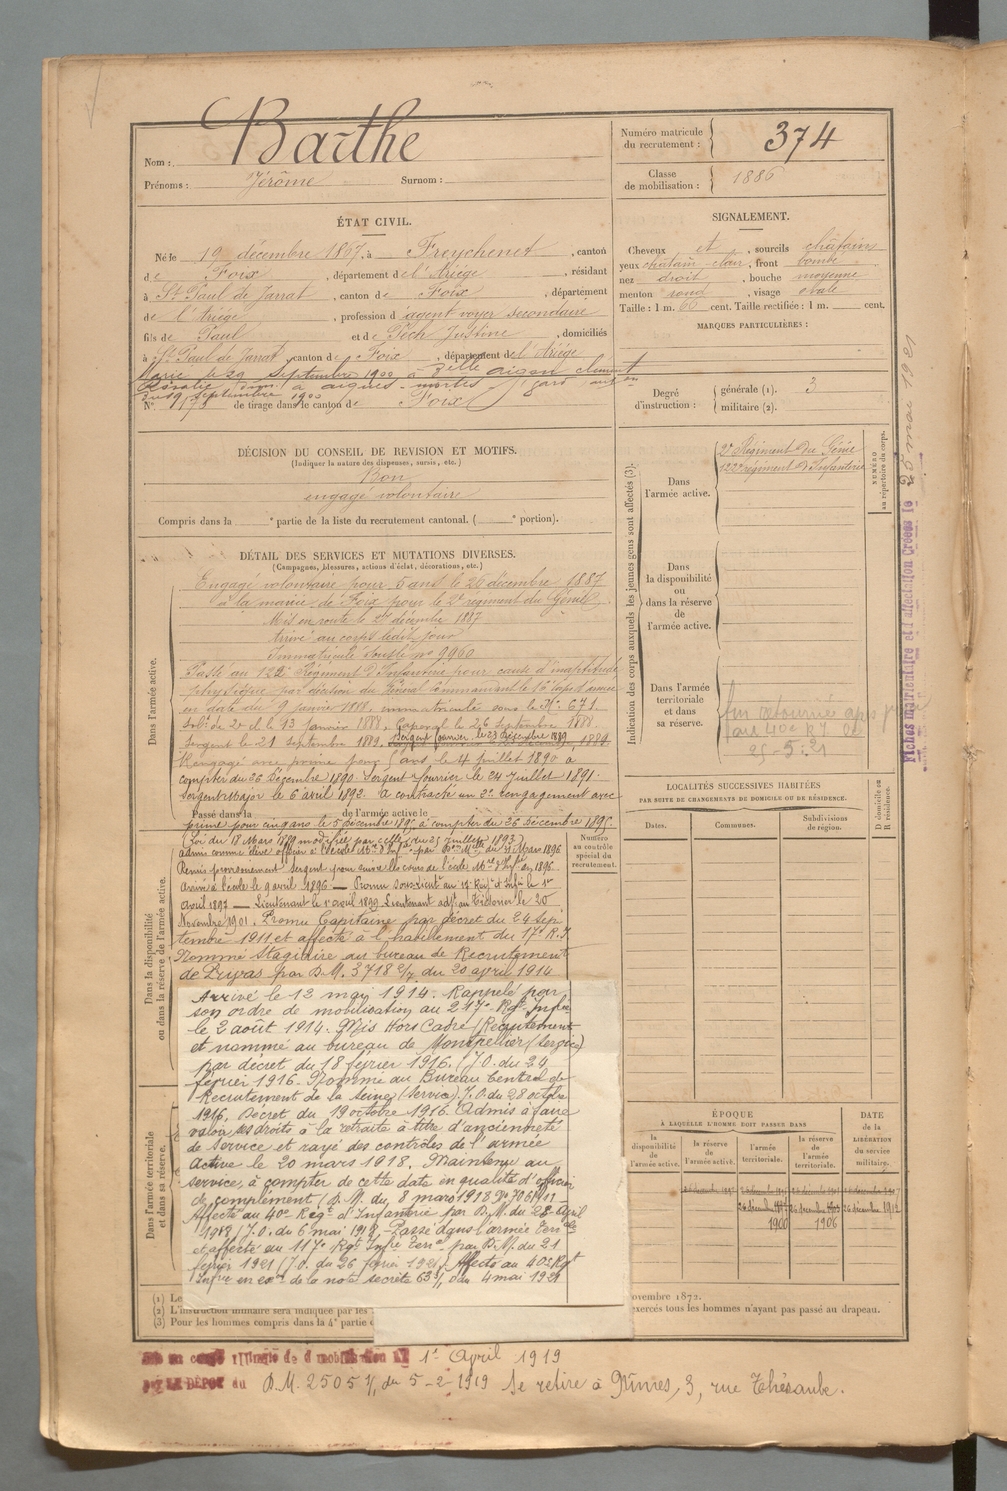 Nom : Barthe
Prénoms : Jérôme Surnom :
Numéro matricule du recrutement : 374
Classe de mobilisation : 1886
ÉTAT CIVIL.
Né le 19 décembre 1867, à Freychenet, canton
de Foix, département de l'Ariège, résidant
à St Paul de Jarrat, canton de Foix, département
de l'Ariège, profession d'agent voyer secondaire
fils de Paul et de Pech Justine, domiciliés
à St Paul de Jarrat, canton de Foix, département de l'Ariège
Marié le 29 Septembre 1900 à Delle aigon clément
Rosalie à aigues-mortes gard
septembre 1900
N° de tirage dans le canton de Foix
SIGNALEMENT.
Cheveux et, sourcils châtains
yeux châtain clair, front bombé
nez droit, bouche moyenne
menton rond, visage ovale
Taille : 1 m. 66 cent. Taille rectifiée : 1 m. cent.
MARQUES PARTICULIÈRES :
Degré d'instruction : générale (1). 3
militaire (2).
DÉCISION DU CONSEIL DE REVISION ET MOTIFS.
(Indiquer la nature des dispenses, sursis, etc.)
Bon
engagé volontaire
Compris dans la e partie de la liste du recrutement cantonal. ( e portion).
DÉTAIL DES SERVICES ET MUTATIONS DIVERSES.
(Campagnes, blessures, actions d'éclat, décorations, etc.)
Dans l'armée active.
Engagé volontaire pour 5 ans le décembre 1887
à la mairie de Foix pour le 2e régiment du Génie.
Mis en route le décembre 1887
Arrivé au corps ledit jour
Immatriculé sous le n° 9960
Passé au 122e Régiment d'Infanterie pour cause d'inaptitude
physique par décision du Général Commandant le 16e corps d'armée
en date du 9 janvier 1888, immatriculé sous le N° 671.
Sol. de 2e cl. le 13 janvier 1888, Caporal le 26 septembre 1888.
Sergent le 21 septembre 1889, Sergent fourrier le 23 Décembre 1889
Rengagé avec prime pour 5 ans le 4 juillet 1890 à
compter du 26 Décembre 1890. Sergent fourrier le 24 Juillet 1891.
Sergent Major le 6 avril 1892. a contracté un 2e rengagement avec
Passé dans la de l'armée active le
prime pour cinq ans le 5 Décembre 1895 à compter du 26 Décembre 1895.
(Loi du 18 Mars 1889 modifiée par celle du 25 juillet 1893)
Admis comme élève officier à l'école Mre d'Inf. par Don Mlle du 31 Mars 1896
Remis provisoirement sergent pour suivre les cours de l'école Mre d'Inf. en 1896.
Arrivé à l'école le 9 avril 1896 — Promu sous-lieut. au Régt d'Infie le 1er
Avril 1897 — Lieutenant le 1er avril 1899 — Lieutenant adjt au Trésorier le 20
Novembre 1901. Promu Capitaine par décret du 24 sep-
tembre 1911 et affecté à l'habillement du 17e R.I
Nommé Stagiaire au bureau de Recrutement
de Privas par D.M. 3718 2/7 du 20 avril 1914
Dans la disponibilité ou dans la réserve de l'armée active.
Numéro au contrôle spécial du recrutement.
Arrivé le 13 mai 1914. Rappelé par
son ordre de mobilisation au 217e Régt Infie
le 2 août 1914. Mis Hors Cadre (Recrutement
et nommé au bureau de Montpellier (Service)
par décret du 18 février 1916. (J.O. du 24
février 1916. Nommé au Bureau Central de
Recrutement de la Seine (Service). J.O. du 28 octobre
1916. Décret du 19 octobre 1916. Admis à faire
valoir ses droits à la retraite à titre d'ancienneté
de Service et rayé des contrôles de l'armée
active le 20 mars 1918. Maintenu au
service, à compter de cette date en qualité d'officier
de complément, D.M. du 8 mars 1918
Affecté au 40e Régt d'Infanterie par D.M. du 28 avril
1918 (J.O. du 6 mai 1918 - Passé dans l'armée Terrle
et affecté au 117e Rgt Infie Terre par D.M. du 21
février 1921 (J.O. du 26 février 1921) Affecté au 40e Rgt
Infie en exon de la note secrète du 4 mai 1921
Dans l'armée territoriale et dans sa réserve.
Indication des corps auxquels les jeunes gens sont affectés (3).
Dans l'armée active.
2e Régiment du Génie
122e régiment d'Infanterie
NUMÉRO au répertoire du corps.
Dans la disponibilité ou dans la réserve de l'armée active.
Dans l'armée territoriale et dans sa réserve.
25-5-21
Fiches matriculaire et d'affectation Créées le 25 mai 1921
LOCALITÉS SUCCESSIVES HABITÉES
PAR SUITE DE CHANGEMENTS DE DOMICILE OU DE RÉSIDENCE.
Dates. Communes. Subdivisions de région. D domicile ou R résidence.
ÉPOQUE
À LAQUELLE L'HOMME DOIT PASSER DANS
la disponibilité de l'armée active. la réserve de l'armée active. l'armée territoriale. la réserve de l'armée territoriale.
DATE de la LIBÉRATION du service militaire.
26 décembre 1900 26 décembre 1906 26 décembre 1912
(1) Le
ovembre 1872.
(2) L'instruction militaire sera indiquée par les
exercés tous les hommes n'ayant pas passé au drapeau.
(3) Pour les hommes compris dans la 4e partie d
en congé illimité de démobilisation LE 1er April 1919
LE DÉPOT du D.M. 2505 1/1 du 5-2-1919 Se retire à Nîmes, 3, rue Thésaube.